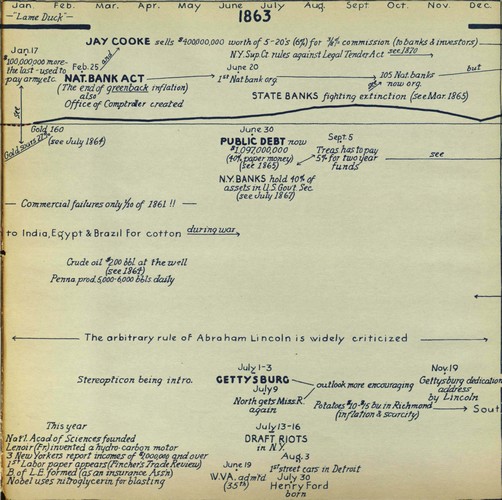 Jan. Feb. Mar. Apr. May June July Aug. Sept. Oct. Nov. Dec.
—"Lame Duck"—
1863
JAY COOKE sells $400,000,000 worth of 5-20's (6%) for 3/8% commission (to banks & investors)
N.Y. Sup. Ct rules against Legal Tender Act see 1870
Jan. 17
$100,000,000 more-
the last-used to
pay army etc.
and
Feb. 25
NAT. BANK ACT
(The end of greenback inflation)
also
Office of Comptroller created
June 20
1st Nat bank org.
105 Nat. banks
now org.
but
STATE BANKS fighting extinction (see Mar. 1865)
see
Gold 160
(see July 1864)
June 30
PUBLIC DEBT now
$1,097,000,000
(40% paper money)
(see 1865)
Sept. 5
Treas has to pay
5% for two year
funds
see
N.Y. BANKS hold 40% of
assets in U.S. Govt. Sec.
(see July 1867)
— Commercial failures only 1/10 of 1861 !! —
to India, Egypt & Brazil For cotton during war
Crude oil $2.00 bbl at the well
(see 1864)
Penna prod. 5,000-6,000 bbls. daily
The arbitrary rule of Abraham Lincoln is widely criticized
Stereopticon being intro.
July 1-3
GETTYSBURG
July 9
North gets Miss. R.
again
outlook more encouraging
Potatoes $10-$15 bu in Richmond
(inflation & scarcity)
Nov. 19
Gettysburg dedication
address
by Lincoln
Sout
This year
Nat'l. Acad of Sciences founded
Lenoir (Fr.) invented a hydro-carbon motor
3 New Yorkers report incomes of $1,000,000 and over
1st Labor paper appears (Fincher's Trade Review)
B. of L.E. formed (as an insurance Ass'n)
Nobel uses nitroglycerin for blasting
July 13-16
DRAFT RIOTS
in N.Y.
Aug. 3
1st street cars in Detroit
June 19
W. VA. admtd
(35th)
July 30
Henry Ford
born